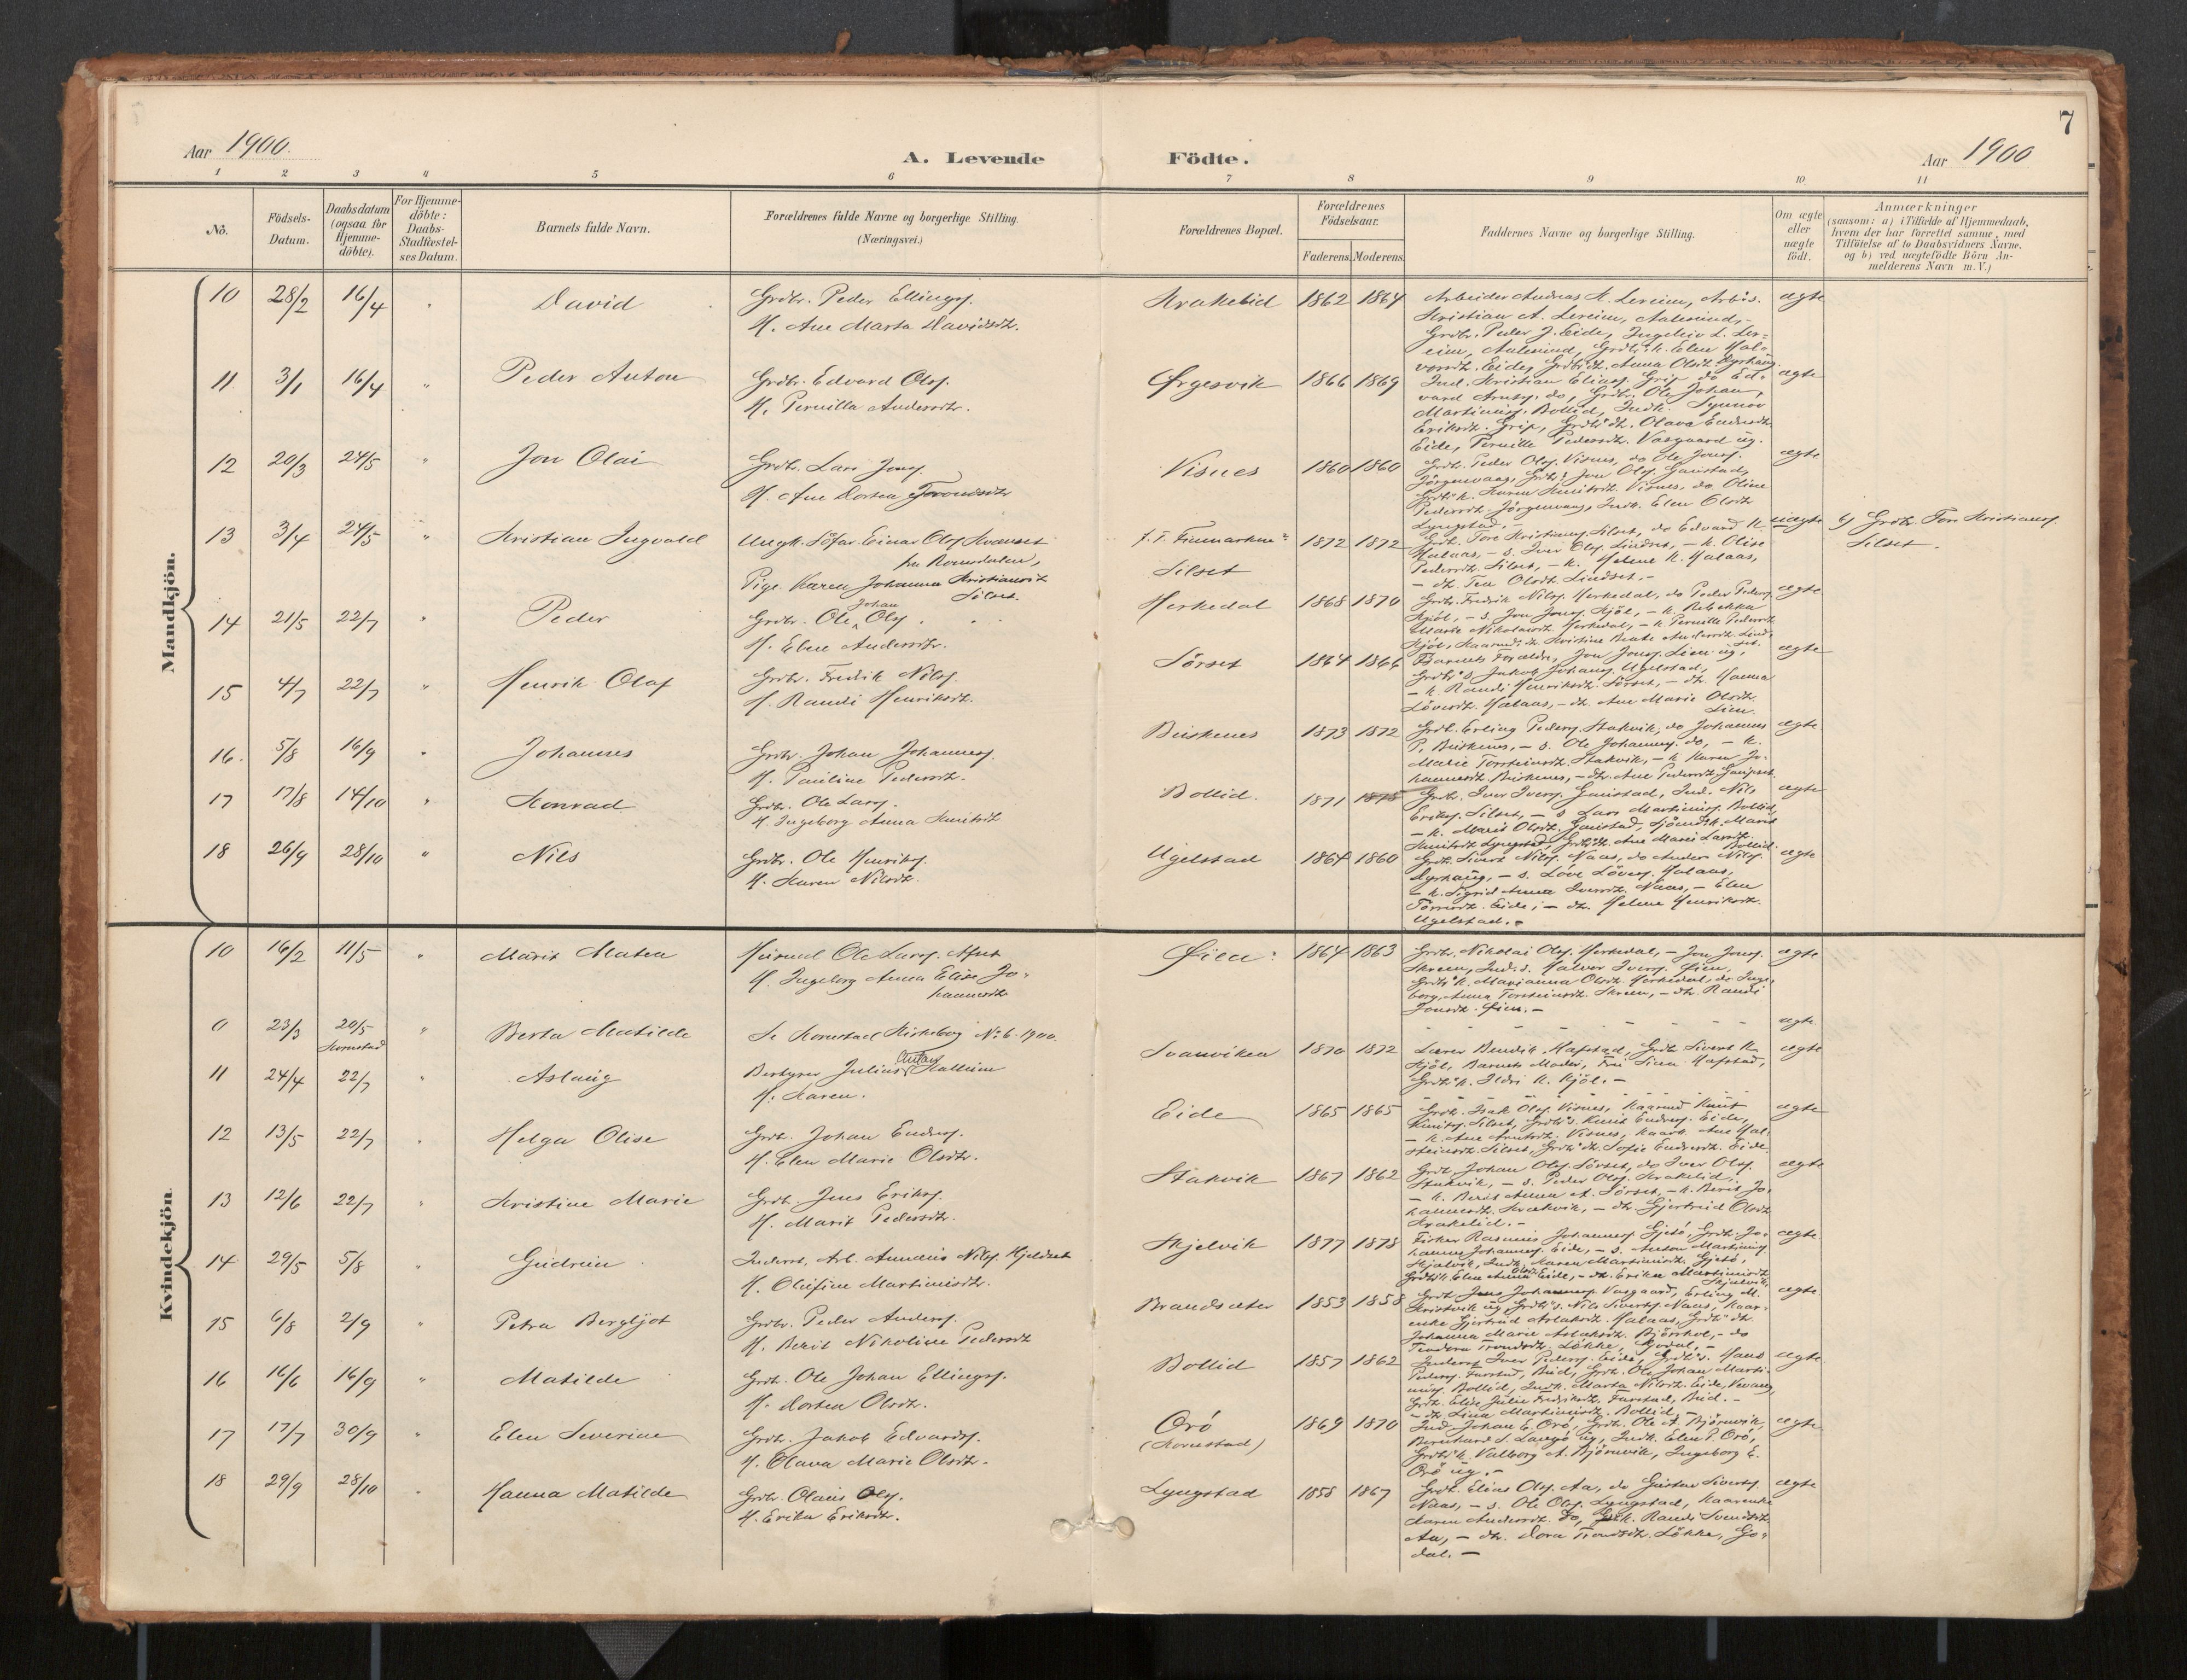 7
Aar 1900.
A. Levende Födte.
Aar 1900
1 2 3 4 5 6 7 8 9 10 11
No.
Födsels-
Datum.
Daabsdatum
(ogsaa for
Hjemme-
döbte).
For Hjemme-
döbte:
Daabs-
Stadfæstel-
ses Datum.
Barnets fulde Navn.
Forældrenes fulde Navne og borgerlige Stilling.
(Næringsvei.)
Forældrenes Bopæl.
Forældrenes
Födselsaar.
Faderens. Moderens.
Faddernes Navne og borgerlige Stilling.
Om ægte
eller
uægte
födt.
Anmærkninger
(saasom: a) i Tilfælde af Hjemmedaab,
hvem der har forrettet samme, med
Tilföielse af to Daabsvidners Navne,
og b) ved uægtefödte Börn An-
melderens Navn m. V.)
Mandkjön.
10 28/2 16/4 " David
Grdbr. Peder Ellings.
H. Ane Marta Davidsdtr.
Krakelid 1862 1864
Arbeider Andreas K. Lereim, Arb's.
Kristian A. Lereim, Aalesund,
Grdbr. Peder J. Eide, Ingeleiv L. Ler=
eim, Aalesund, Grdb'k. Elen Hal=
vorsdt. Eide, Grdb'dt. Anna Olsdt. Dyrhaug.
ægte
11 3/1 16/4 " Peder Anton
Grdbr. Edvard Ols.
H. Pernilla Andersdtr.
Ørgesvik 1866 1869
Ind. Kristian Elias. Grip, do Ed=
vard Arnts. do, Grdbr. Ole Johan
Martinus. Bollid, Indk. Synnöv
Eriksdt. Grip, Grdb'dt. Olava Endresdt.
Eide, Pernille Pedersdt. Vasgaard ug.
ægte
12 20/3 24/5 " Jon Olai
Grdbr. Lars Jons.
H. Ane Dortea Trondsdtr
Visnes 1860 1860
Grdb. Peder Ols. Visnes, do Ole Jons.
Jörgenvaag, Grdb's Jon Ols. Gaustad,
Grdb'k. Karen Knutsdt. Visnes, do Oline
Pedersdt. Jörgenvaag, Indk. Elen Olsdt
Lyngstad.
ægte
13 3/4 24/5 " Kristian Ingvald
Ungk. Söfar. Einar Ols. Kvamset
fra Romsdalen,
Pige Karen Johanna Kristiansdt
Silset.
f. T. Finmarken=
Silset 1872 1872
Grdb. Tore Kristians. Silset, do Edvard K.
Halaas, - s. Iver Ols. Lindset, - k. Olise
Pedersdt. Silset, - k. Helene K. Halaas,
- dt. Tea Olsdt. Lindset.-
uægte
b) Grdbr. Tore Kristians.
Silset.
14 21/5 22/7 " Peder
Grdbr. Ole Johan Ols.
H. Elene Andersdtr.
Herkedal 1868 1870
Grdbr. Fredrik Nils. Herkedal, do Peder Peders.
Kjöl, - s. Jon Jons. Kjöl, - k. Rebekka
Marie Nikolaisdt. Herkedal, - k. Pernille Pedersdt
Kjöl, Kaarmds. dt. Kristine Beate Andersdt. Lind=
set.
ægte
15 4/7 22/7 " Henrik Olaf
Grdbr. Fredrik Nils.
H. Randi Henriksdt.
Sörset 1864 1866
Barnets Forældre, Jon Jons. Lien ug,
Grdb's. Jakob Johans. Ugelstad,
- k. Randi Henriksdt. Sörset, - dt. Hanna
Löversdt. Halaas, - dt. Ane Marie Olsdt.
Lien.
ægte
16. 5/8 16/9 " Johannes
Grdbr. Johan Johannes.
H. Pauline Pedersdt.
Buskenes 1873 1872
Grdb. Erling Peders. Stakvik, do Johannes
P. Buskenes, - s. Ole Johannes. do, - k.
Marie Torsteinsdt. Stakvik, - k Karen Jo=
hannesdt. Buskenes, - dt. Ane Pedersdt. Gaupset.
ægte
17 17/8 14/10 " Konrad
Grdbr. Ole Lars.
H. Ingeborg Anna Knutsdt
Bollid. 1871 1875
Grdb. Iver Ivers. Gaustad, Ind. Nils
Eriks. Silset, - s Lars Martinus. Bollid,
- k. Marit Olsdt. Gaustad, Sjömds k. Marit
Knutsdt. Lyngstad, Grdb'dt. Ane Marie Larsdt.
Bollid.
ægte
18 26/9 28/10 " Nils
Grdbr. Ole Henriks.
H. Karen Nilsdt.
Ugelstad 1864 1860
Grdb. Sivert Nils. Naas, do Anders Nils.
Dyrhaug, - s. Löve Lövers. Halaas,
- k. Sigrid Anna Iversdt. Naas, - Elen
Töresdt. Eide, - dt. Helene Henriksdt.
Ugelstad.-
ægte
Kvindekjön.
10 16/2 11/5 " Marit Matea
Husmd Ole Lars. Ahnt
H. Ingeborg Anna Elise Jo=
hannesdt
Øien: 1864 1863
Grdbr. Nikolai Ols. Herkedal, - Jon Jons.
Skreen, Ind. s. Halvor Ivers. Øien,
Grdb'k. Marianna Olsdt. Herkedal, do Inge=
borg Anna Torsteinsdt. Skreen, - dt. Randi
Jonsdt. Øien.-
ægte
0 23/3 20/5 Kornstad " Berta Matilde
Se Kornstad Kirkebog No 6. 1900.
ægte
11 24/4 22/7 " Aslaug
Bestyrer Julius Hallum
H. Karen.
Svanviken 1870 1872
Lærer Bendik Hafstad, Grdb Sivert K.
Kjöl, Barnets Moder, Fru Sina Hafstad,
Grdb'k. Ildri K. Kjöl.-
ægte
12 13/5 22/7 " Helga Olise
Grdb. Johan Endres.
H. Elen Marie Olsdtr.
Eide 1865 1865
Grdb. Isak Ols. Visnes, Kaarmd Knut
Knuts. Silset, Grdb's. Knut Endres. Eide,
- k. Ane Arntsdt. Visnes, Kaark. Ane Hal=
steinsdt. Silset, Grdb'dt. Sofie Endresdt. Eide.
ægte
13 12/6 22/7 " Kristine Marie
Grdb. Jens Eriks.
H. Marit Pedersdtr.
Stakvik 1867 1862
Grdb. Johan Ols. Sörset, do Iver Ols.
Stakvik, - s. Peder Ols. Krakelid,
- k. Berit Anna A. Sörset, - k. Berit Jo=
hannesdt. Stakvik, - dt. Gjertrud Olsdt
Krakelid.-
ægte
14 29/5 5/8 " Gudrun
Inderst, Arb. Anneus Nils. Kjeldset
H. Olufine Martinusdtr.
Skjelvik 1877 1878
Fisker Rasmus Johannes. Gjetö, Grdb. Jo=
hannes Johannes. Eide, - s. Anton Martinus.
Skjelvik, Indk. Karen Martinusdt. Gjetö,
Grdb'k. Elen Anna Olsdt Eide, - dt. Erika Martinusdt
Skjelvik.
ægte
15 6/8 2/9 " Petra Bergljot
Grdbr. Peder Anders.
H. Berit Nikoline Pedersdt
Brandsæter 1853 1858
Grdb. Jens Johannes. Vasgaard, Erling M.
Kristvik ug, Grdb's. Nils Siverts. Naas, Kaar=
enke Gjertrud Aslaksdt. Halaas, Grdb'dt.
Johanna Marie Aslaksdt. Bjørshol, - do
Teodora Trondsdt. Lökke, Godal.-
ægte
16 16/6 16/9 " Matilde
Grdb. Ole Johan Ellings.
H. Dortea Olsdt.
Bollid 1857 1862
Inderst Iver Peders. Eide, Grdb's. Hans
Peders. Farstad, Bud, Grdb. Ole Johan Marti=
nus. Bollid, Indk. Marta Nilsdt. Eide, Vevang,
Grdb. Elise Julie Fredriksdt. Farstad, Bud.-
- dt. Lina Martinusdt. Bollid.-
ægte
17 17/7 30/9 " Elen Severine
Grdb. Jakob Edvards.
H. Olava Marie Olsdt.
Orö
(Kornstad) 1869 1870
Ind Johan E. Orö, Grdb. Ole A. Bjørnvik,
Bernhard S. Langö ug, Indk. Elen P. Orö,
Grdb'k. Valborg A. Bjørnvik, Ingeborg E.
Orö ug.-
ægte
18 29/9 28/10 " Hanna Matilde
Grdbr. Olaus Ols.
H. Erika Eriksdt.
Lyngstad 1858 1867
Grdb. Elias Ols. Aa, do Gustav Siverts.
Naas, - s. Ole Ols. Lyngstad, Kaarenke
Karen Andersdt. do, Indk. Randi Svendsdt
Aa, - dt. Dora Trondsdt. Lökke, Go=
dal.-
ægte